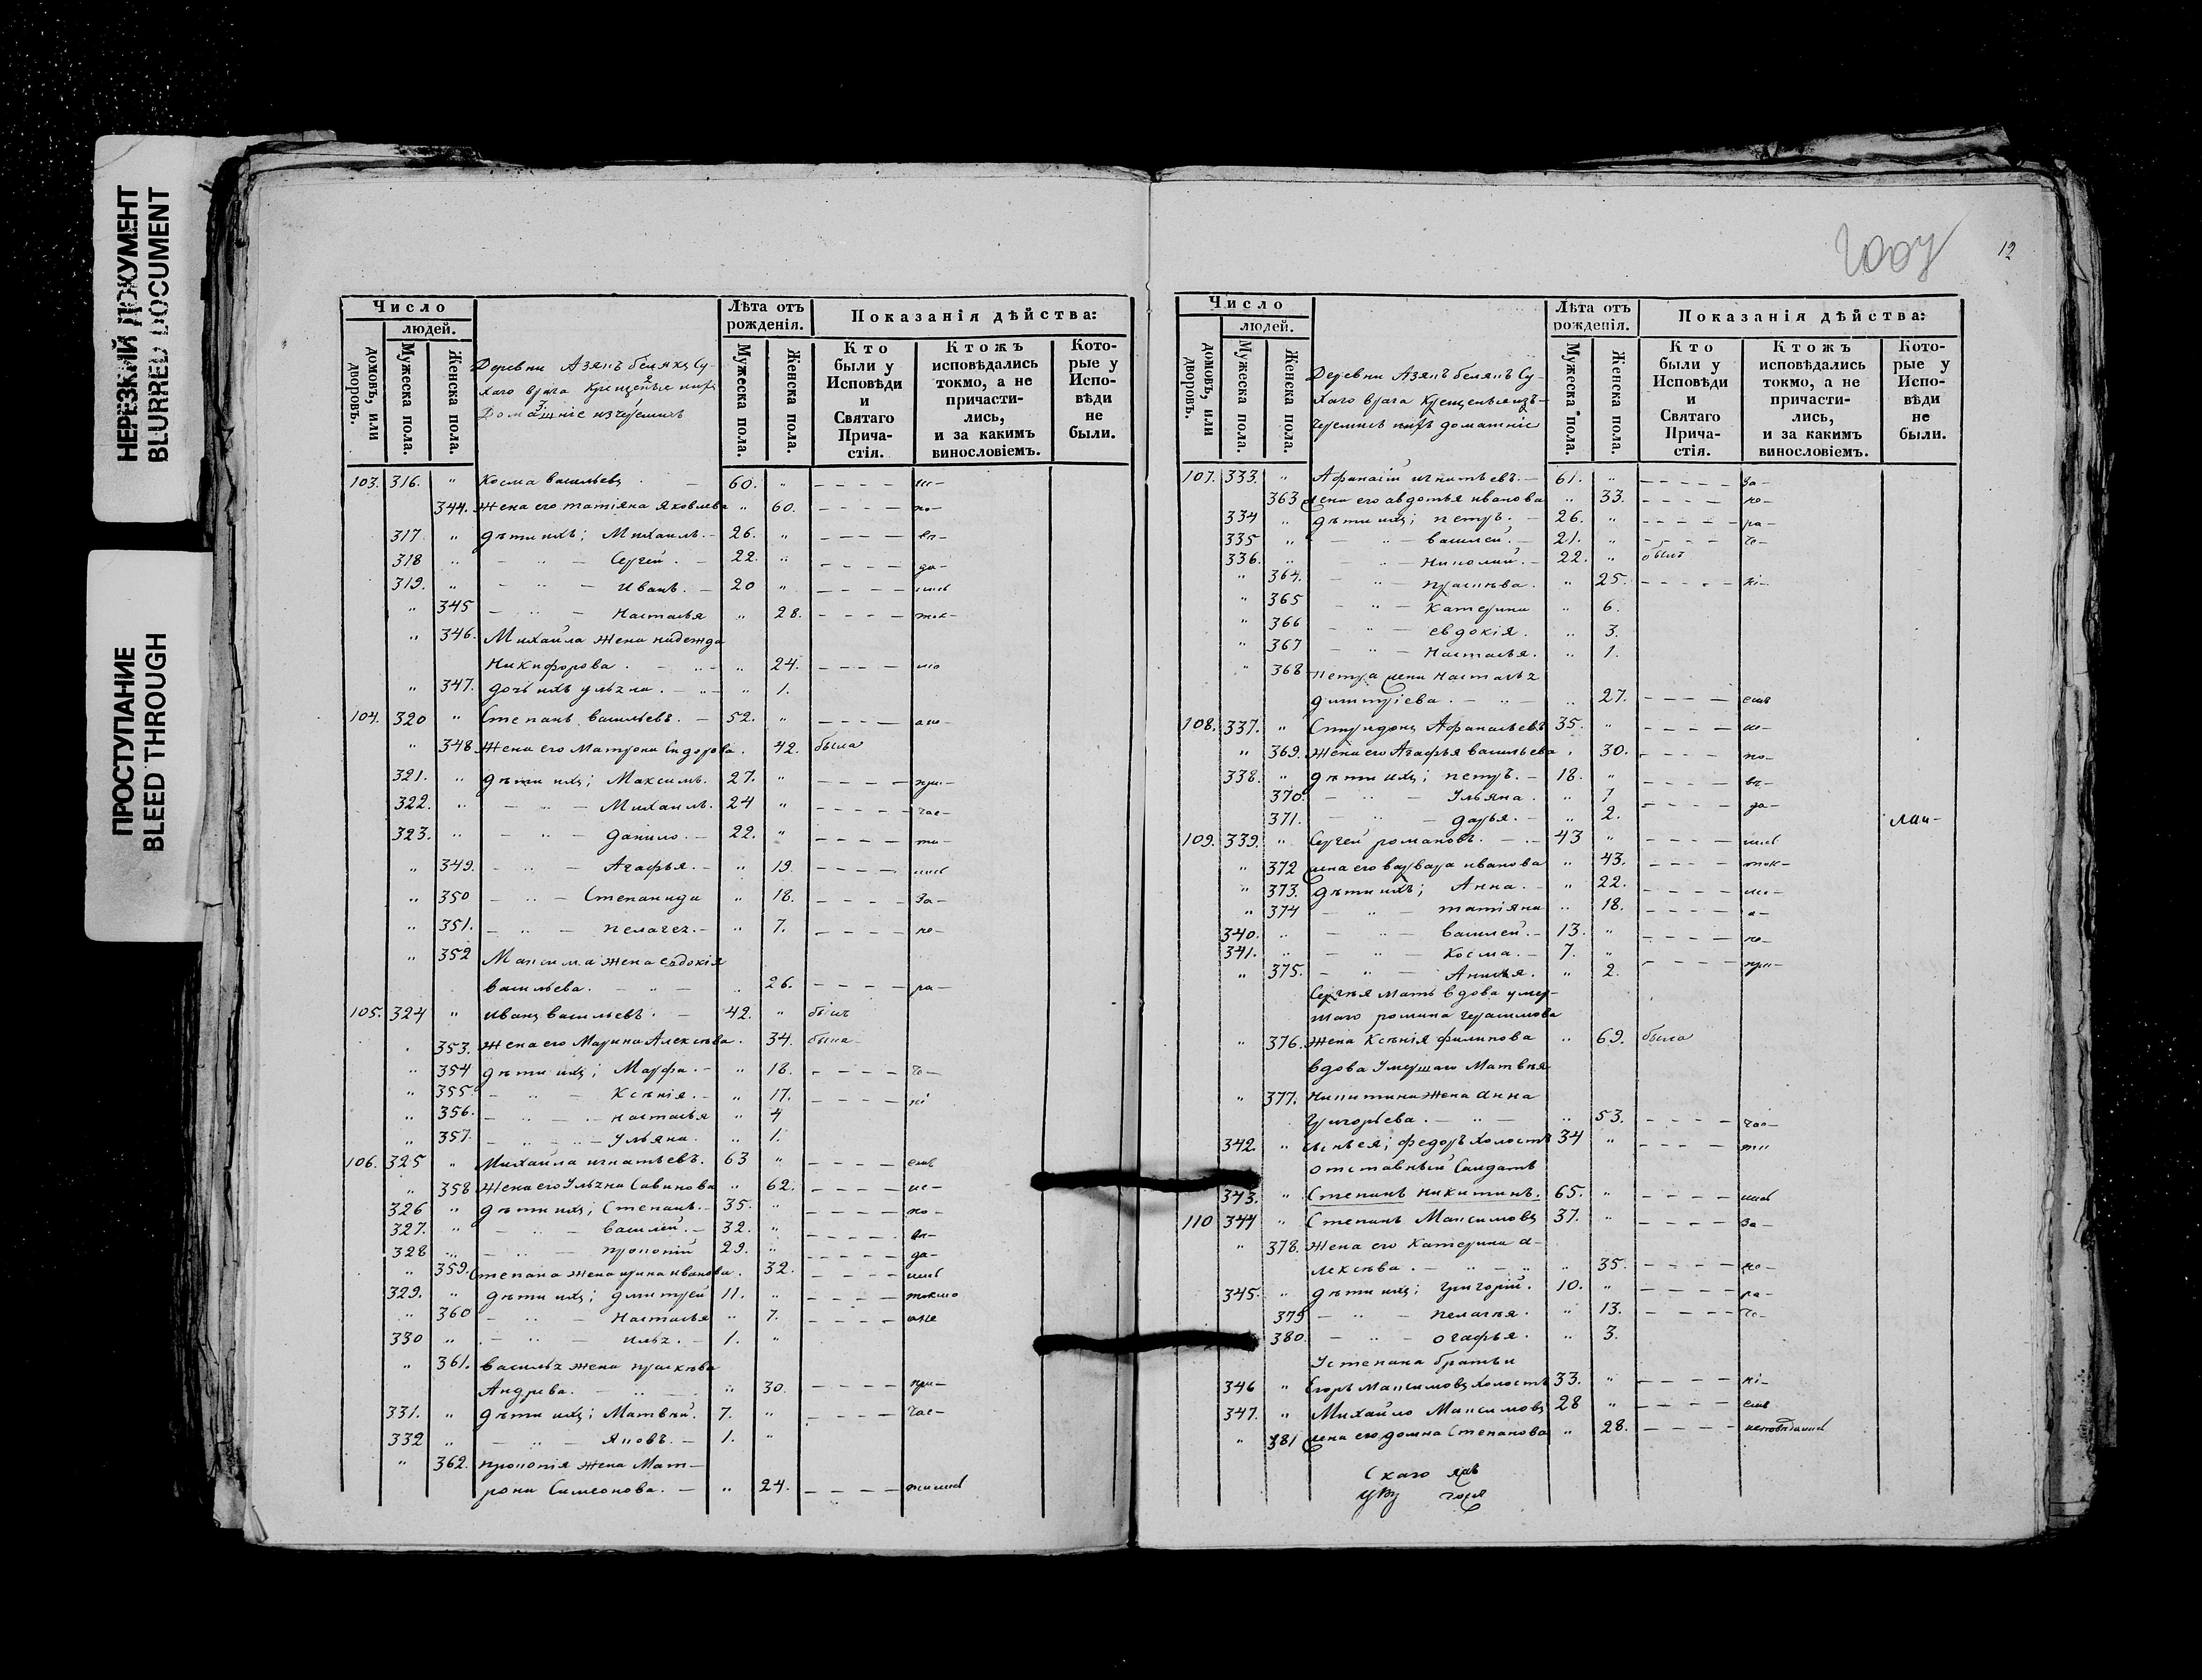 НЕРЕЗКИЙ ДОКУМЕНТ
BLURRED DOCUMENT
ПРОСТУПАНИЕ
BLEED THROUGH
Число
людей.
домовъ, или дворовъ.
Мужеска пола.
Женска пола.
Деревни Азянъ белякъ Су-
хаго врага Крещеные ихъ
Домашніе изчеремисъ
Лѣта отъ рожденія.
Мужеска пола.
Женска пола.
Показанія дѣйства:
Кто были у Исповѣди и Святаго Прича-стія.
Ктожъ исповѣдались токмо, а не причасти-лись, и за какимъ винословіемъ.
Кото-рые у Испо-вѣди не были.
103. 316. " Косма васильевъ . — 60. " — — — — ис—
344. Жена его татіяна Яковлева " 60. — — — — по—
317 " дѣти ихъ; Михаилъ. — 26. " — — — — вѣ—
318 " — " — Сергей . — 22. " — — — — да—
319. " — " — Иванъ. — 20 " — — — — лись
" 345 — " — Насталья " 28. — — — — ток—
" 346. Михаила жена надежда
Никифорова . — " — " 24. — — — — мо
" 347. дочь ихъ ульяна . — " — " 1.
104. 320 " Степанъ васильевъ. — 52. " — — — — ане—
" 348 Жена его Матрона Сидорова . 42. была
321. " дѣти ихъ; Максимъ. 27. " — — — — при—
322. " — " — Михаилъ. 24 " — — — — час—
323. " — " — данило. — 22. " — — — — ти—
" 349. — " — Агафья. — " 19. — — — — лись
" 350 — " — Степанида " 18. — — — — За—
" 351. — " — пелагея. — " 7. — — — — не—
" 352 Максима жена евдокія
васильева. — " — " 26. — — — — ра—
105. 324 " иванъ васильевъ . — 42. " былъ
353. Жена его Марина Алексѣева . 34. была
" 354 дѣти ихъ; Марфа. — " 18. — — — — че—
" 355 — " — Ксѣнія . — " 17. — — — — ні
" 356. — " — насталья " 4
" 357. — " — ульяна. " 1.
106. 325 " Михаила игнатьевъ. 63 " — — — — емъ
" 358 Жена его Ульяна Савинова " 62. — — — — ис—
326 " дѣти ихъ; Степанъ. — 35. " — — — — по—
327. " — " — василей. — 32. " — — — — вѣ—
328 " — " — прокопій 29. " — — — — да—
" 359. Степана жена ирина иванова . 32. — — — — лись
329. " дѣти ихъ; дмитрей 11. " — — — — токмо
" 360 — " — Насталья " 7. — — — — ане
330 " — " — илья. — 1. "
" 361. василья жена праскѣва
Андрева. — " — " 30. — — — — при—
331. " дѣти ихъ; Матвѣй. 7. " — — — — час—
332 " — " — яковъ. — 1. "
" 362. прокопія жена Мат—
рона Симеонова. — " 24. — — — — тились
12
Число
людей.
домовъ, или дворовъ.
Мужеска пола.
Женска пола.
Деревни Азянъ белякъ Су-
хаго врага Крещеные изъ-
Черемисъ ихъ домашніе
Лѣта отъ рожденія.
Мужеска пола.
Женска пола.
Показанія дѣйства:
Кто были у Исповѣди и Святаго Прича-стія.
Ктожъ исповѣдались токмо, а не причасти-лись, и за какимъ винословіемъ.
Кото-рые у Испо-вѣди не были.
107. 333. " Афанасій игнатьевъ. — 61. " — — — — За—
363 жена его авдотья иванова " 33. — — — — не—
334 " дѣти ихъ; петръ. — 26. " — — — — ра—
335 " — " — василей. — 21. " — — — — че—
336. " — " — Николай. — 22. " былъ
" 364. — " — праскѣва. " 25. — — — — ні—
" 365 — " — Катерина " 6.
" 366 — " — евдокія . " 3.
" 367 — " — Насталья. " 1.
" 368 петра жена насталья
димитріева. — " — " 27. — — — — емъ
108. 337. " Спиридонъ Афанасьевъ 35. " — — — — ис—
" 369. Жена его Агафья васильева . 30. — — — — по—
338. " дѣти ихъ; петръ. — 18. " — — — — вѣ—
370. — " — Ульяна. " 7 — — — — да—
371. — " — дарья. — " 2.
109. 339. " Сергей романовъ. — 43 " — — — — лись
" 372 жена его варвара иванова " 43. — — — — ток—
" 373. дѣти ихъ; Анна. — " 22. — — — — мо—
" 374 — " — татіяна " 18. — — — — а—
340. " — " — василей. — 13. " — — — — не—
341. " — " — Косма. — 7. " — — — — при—
" 375. — " — Анисья. " 2.
Сергѣя мать вдова умер-
шаго романа герасимова
" 376. жена Ксѣнія филипова " 69. была
вдова Умершаго Матвѣя
" 377. Никитина жена анна
Григорьева. — " — " 53. — — — — час—
342. " сынъ ея; федоръ холостъ 34 " — — — — ти
отставный Салдатъ
343. " Степанъ никитинъ. 65. " — — — — лись
110 344 " Степанъ Максимовъ 37. " — — — — За—
" 378. Жена его Катерина а—
лексѣва. — " — " 35. — — — — не—
345. " дѣти ихъ; григорій. 10. " — — — — ра—
379 — " — пелагѣя. " 13. — — — — че—
380. — " — огафья. " 3.
Устепана братьи
346 " Егоръ Максимовъ холостъ 33. " — — — — ні—
347. " Михайло Максимовъ 28 " — — — — емъ
" 381 жена его домна Степанова " 28. — — — — исповѣдались